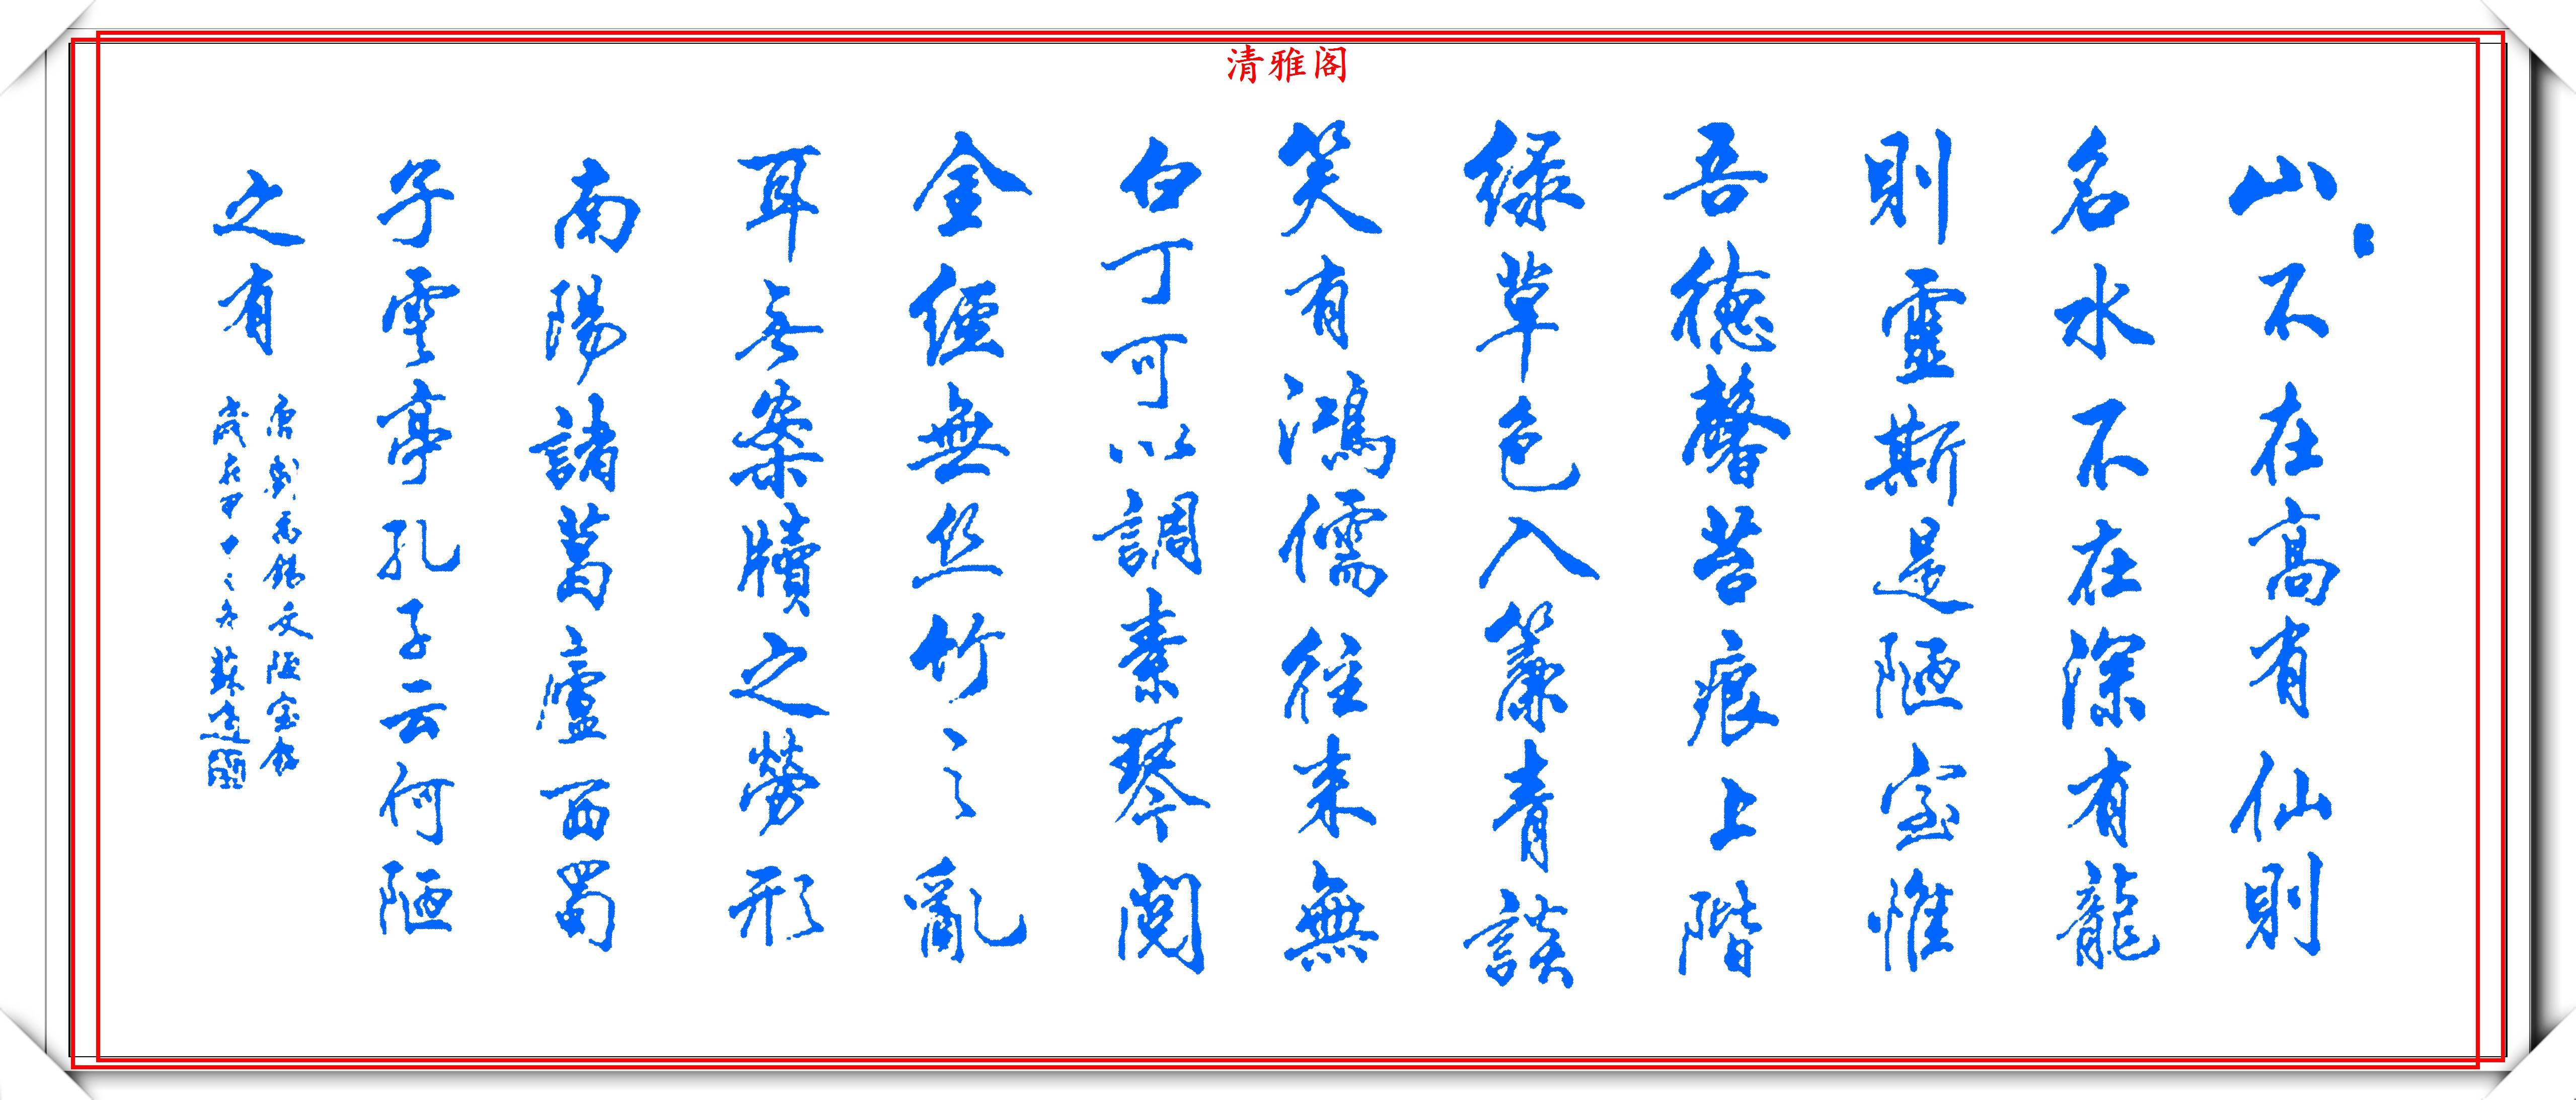 清雅阁
山不在高有仙則
名水不在深有龍
則靈斯是陋室惟
吾德馨苔痕上階
緑草色入簾青談
笑有鴻儒往来無
白丁可以調素琴閱
金經無丝竹之亂
耳无案牘之勞形
南陽諸葛廬西蜀
子雲亭孔子云何陋
之有
唐劉禹錫文陋室銘
歲在甲之冬蘇